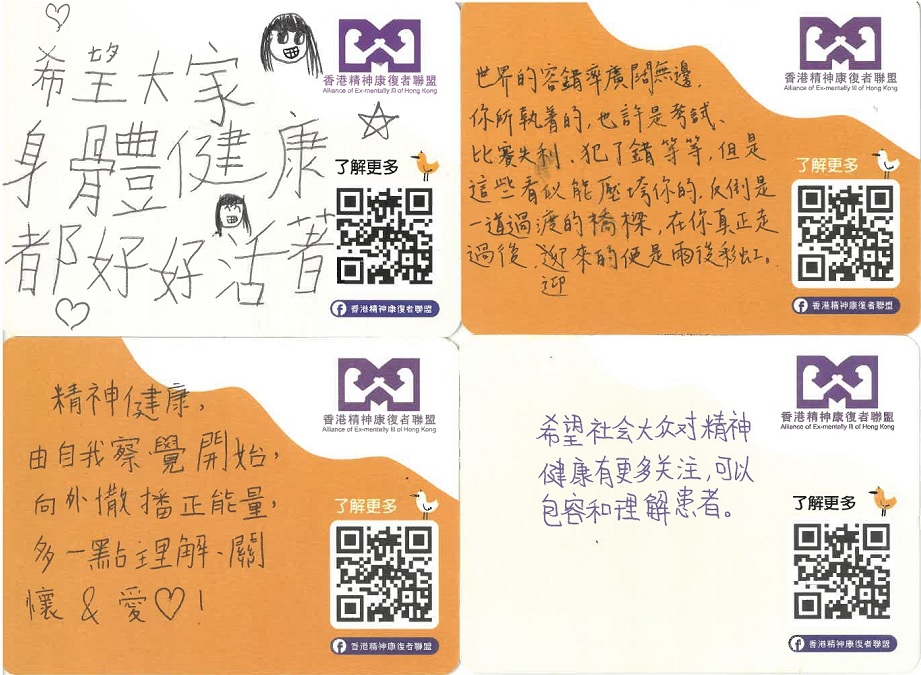 希望大家
身體健康
都好好活著
香港精神康復者聯盟
Alliance of Ex-mentally Ill of Hong Kong
了解更多
香港精神康復者聯盟
世界的容錯率廣闊無邊,
你所執着的,也許是考試、
比賽失利、犯了錯等等,但是
這些看似能壓垮你的,反倒是
一道過渡的橋樑,在你真正走
過後,迎來的便是雨後彩虹。
迎
香港精神康復者聯盟
Alliance of Ex-mentally Ill of Hong Kong
了解更多
香港精神康復者聯盟
精神健康,
由自我察覺開始,
向外撒播正能量,
多一點理解、關
懷 & 愛♡!
香港精神康復者聯盟
Alliance of Ex-mentally Ill of Hong Kong
了解更多
香港精神康復者聯盟
希望社会大众对精神
健康有更多关注,可以
包容和理解患者。
香港精神康復者聯盟
Alliance of Ex-mentally Ill of Hong Kong
了解更多
香港精神康復者聯盟